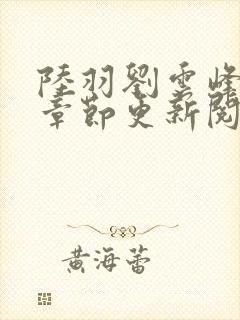 陸羽劉雲峰
章節更新閱
黃海蕾